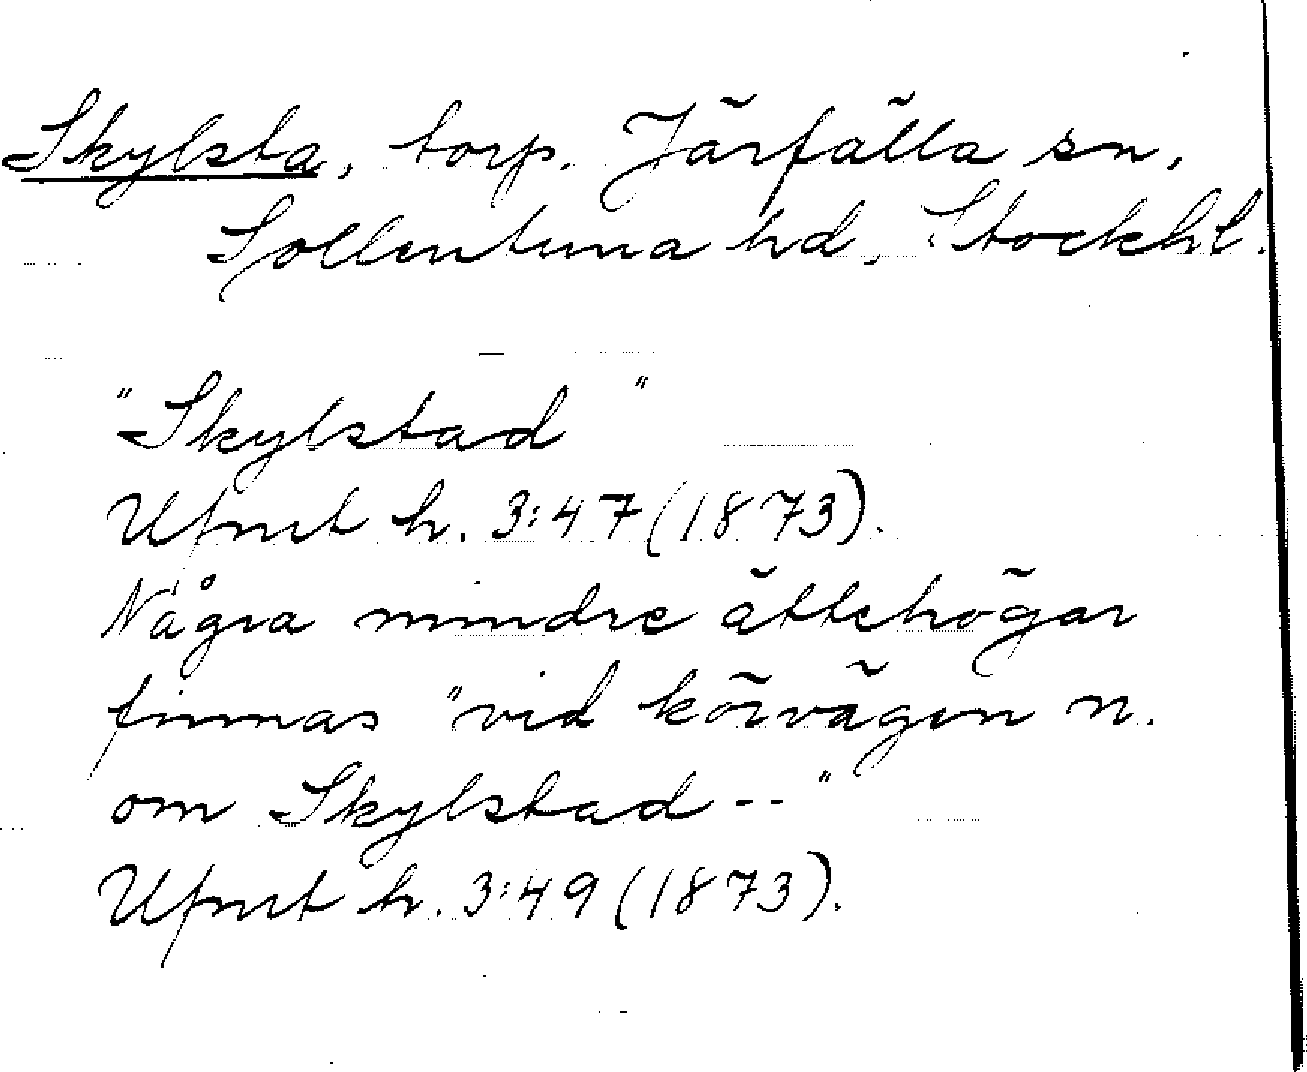 Skylsta, torp. Järfälla sn,
Sollentuna hd, Stockhl.
"Skylstad"
Ufmt h. 3:47 (1873).
Några mindre ättehögar
finnas "vid körvägen n.
om Skylstad--"
Ufmt h. 3:49 (1873).